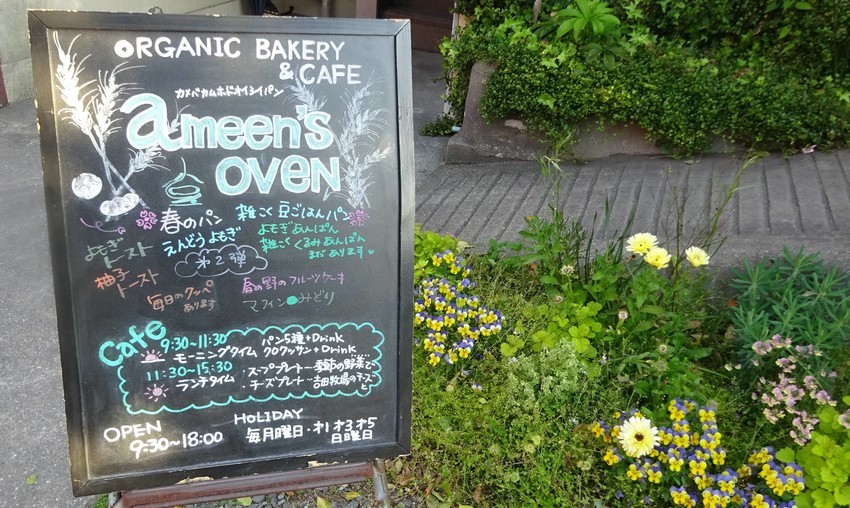 ORGANIC BAKERY
& CAFE
カメバカムホドオイシイパン
ameen's
oven
春のパン
えんどう よもぎ
第2弾
雑こく豆ごはんパン
よもぎあんぱん
雑こくくるみあんぱん
まだあります
よもぎトースト
柚子トースト
毎日のクッパ
あります
春の野のフルーツケーキ
マフィン みどり
Cafe
9:30~11:30 パン5種+Drink
モーニングタイム クロワッサン+Drink
11:30~15:30 ・スーププレート…季節の野菜で
ランチタイム ・チーズプレート…吉田牧場のチーズと
OPEN
9:30~18:00
HOLIDAY
毎月曜日・オ1オ3オ5
日曜日